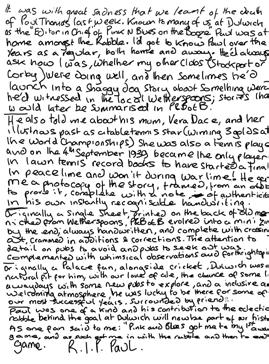 It was with great sadness that we learnt of the death
of Paul Thomas last week. Known to many of us at Dulwich
as the Editor in Chief of Pink N Blues on the Booze Paul was at
home amongst the Rabble. I'd got to know Paul over the
years as a regular, both home and away. He'd always
ask how I was, whether my other clubs (Stockport or
Corby) were doing well, and then sometimes he'd
launch into a shaggy dog story about something
he'd witnessed in the local Wetherspoons; stories that
would later be summarised in PNBotB.
He also told me about his mum, Vera Dace, and her
illustrious past as a table tennis star (winning 3 golds at
the World Championships). She was also a tennis player
and on the 4th September 1939 became the only player
in lawn tennis record books to have started a final
in peacetime and won it during wartime! He gave
me a photocopy of the story, framed, from an
to prove it, complete with a note of authenticity
in his own instantly recognisable handwriting.
Originally a single sheet, printed on the back of
nicked from Wetherspoons, PNBotB evolved into a mini
by the end, always handwritten, and complete with crossings
out, crammed in additions & corrections. The attention to
detail on pubs to avoid and pubs to seek out was
complemented with whimsical observations and forthright
Originally a Palace fan, alongside cricket, Dulwich was a
natural fit for him, with our love of ale, the chance of some
awaydays with some new pubs to explore, and a inclusive and
welcoming atmosphere. He was lucky to be there for some of
our most successful years, surrounded by friends.
Paul was one of a kind and his contribution to the eclectic
rabble behind the goal at Dulwich will now be part of our history.
As one fan said to me: "Pink and Blues got me to my
game, and he got me in with the rabble and then to
game.
R.I.P Paul.